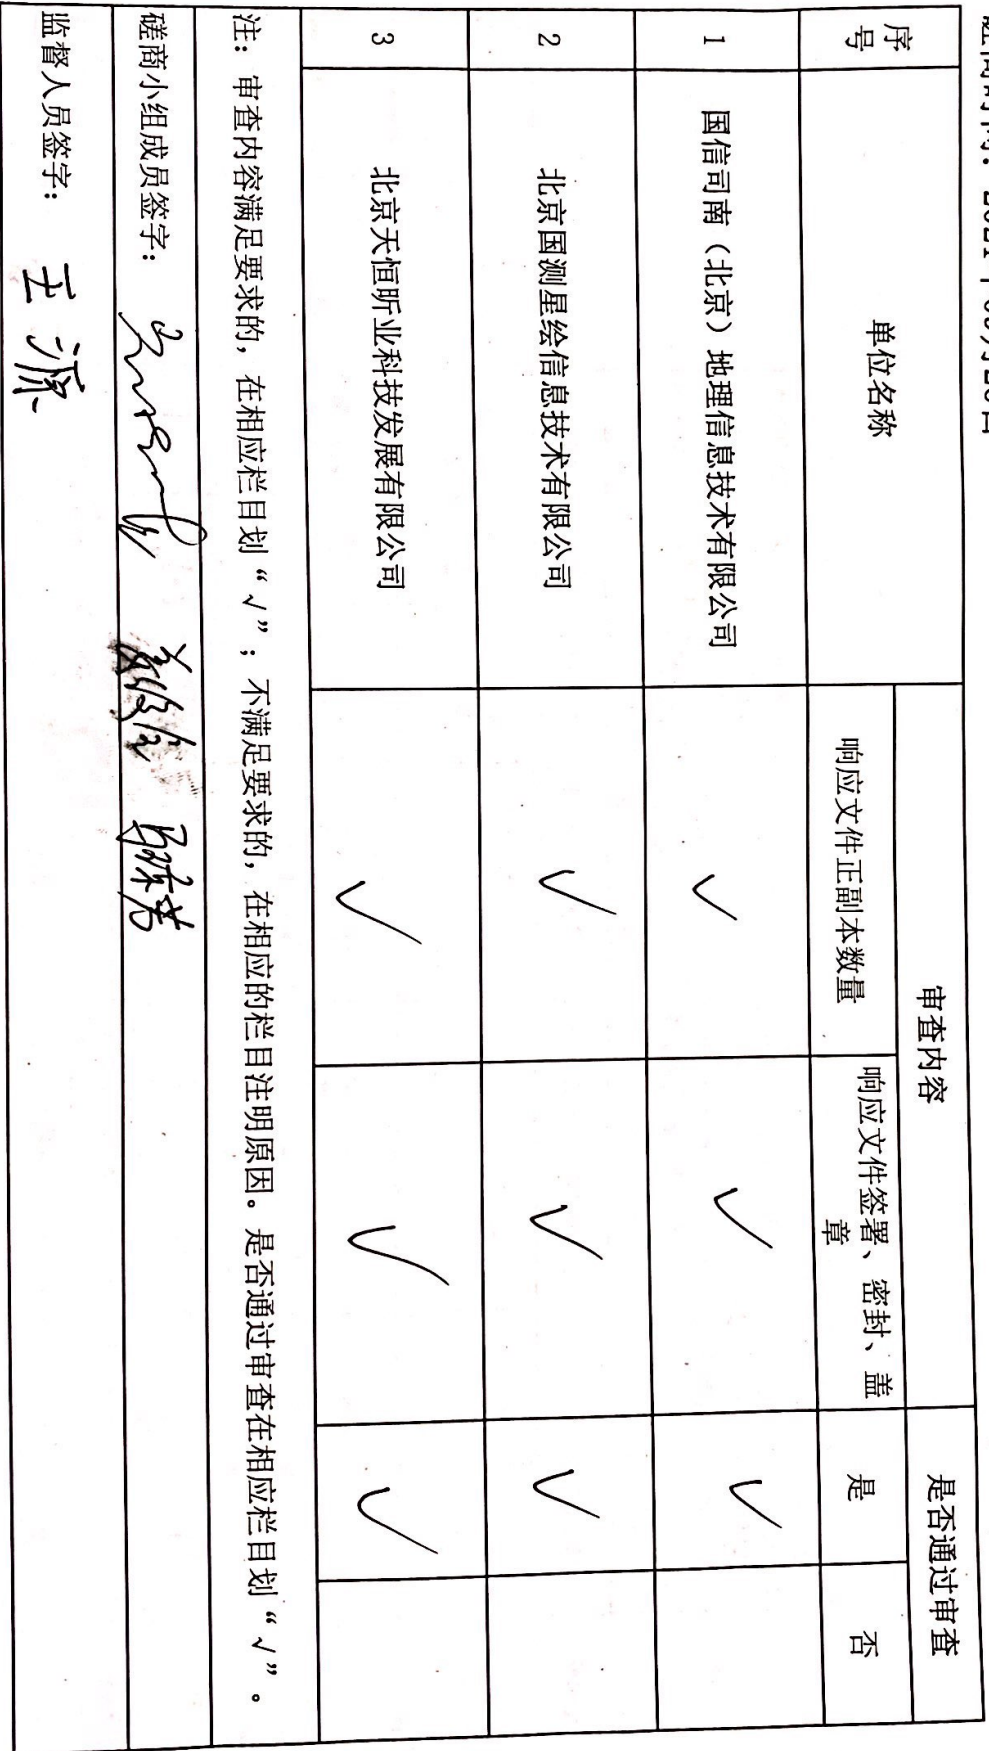 序号 单位名称 审查内容 是否通过审查
响应文件正副本数量 响应文件签署、密封、盖章 是 否
1 国信司南（北京）地理信息技术有限公司 ✓ ✓ ✓
2 北京国测星绘信息技术有限公司 ✓ ✓ ✓
3 北京天恒昕业科技发展有限公司 ✓ ✓ ✓
注：审查内容满足要求的，在相应栏目划“√”；不满足要求的，在相应的栏目注明原因。是否通过审查在相应栏目划“√”。
磋商小组成员签字：
监督人员签字：王源